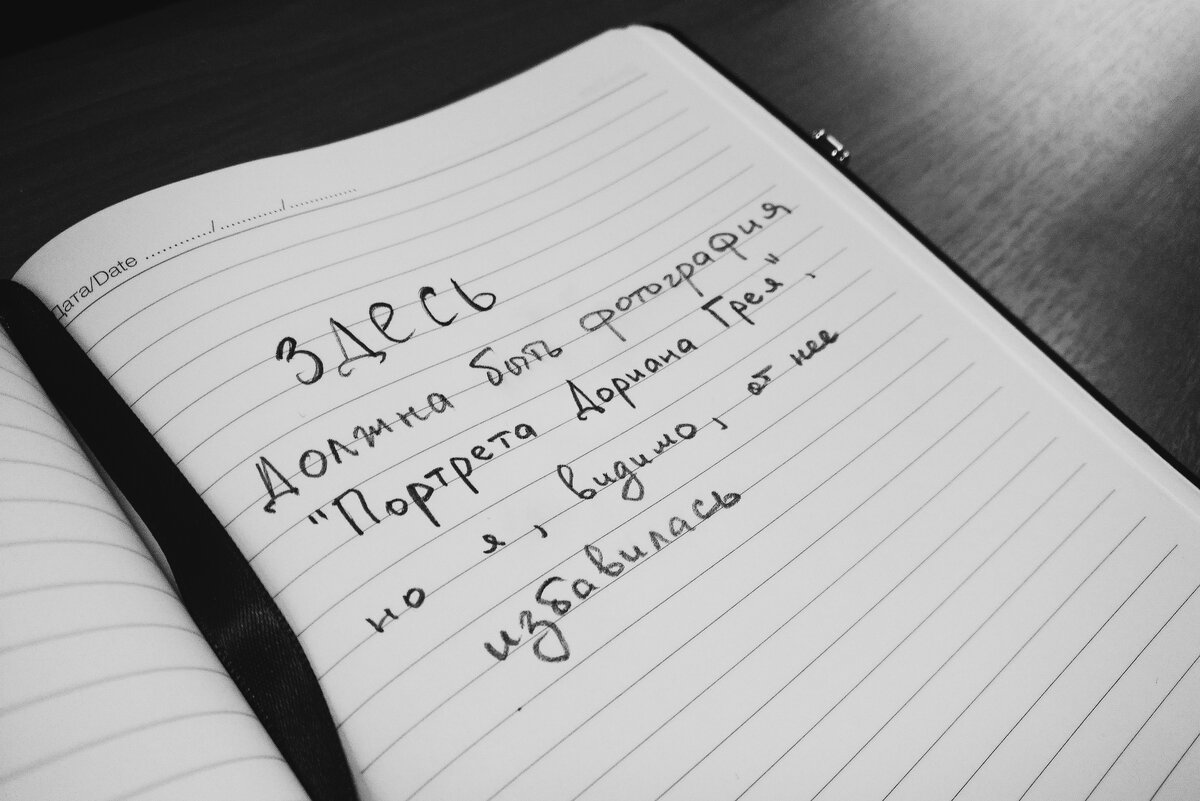 Дата/Date ............/............/............
ЗДЕСЬ
должна быть фотография
"Портрета Дориана Грея",
но я, видимо, от нее
избавилась